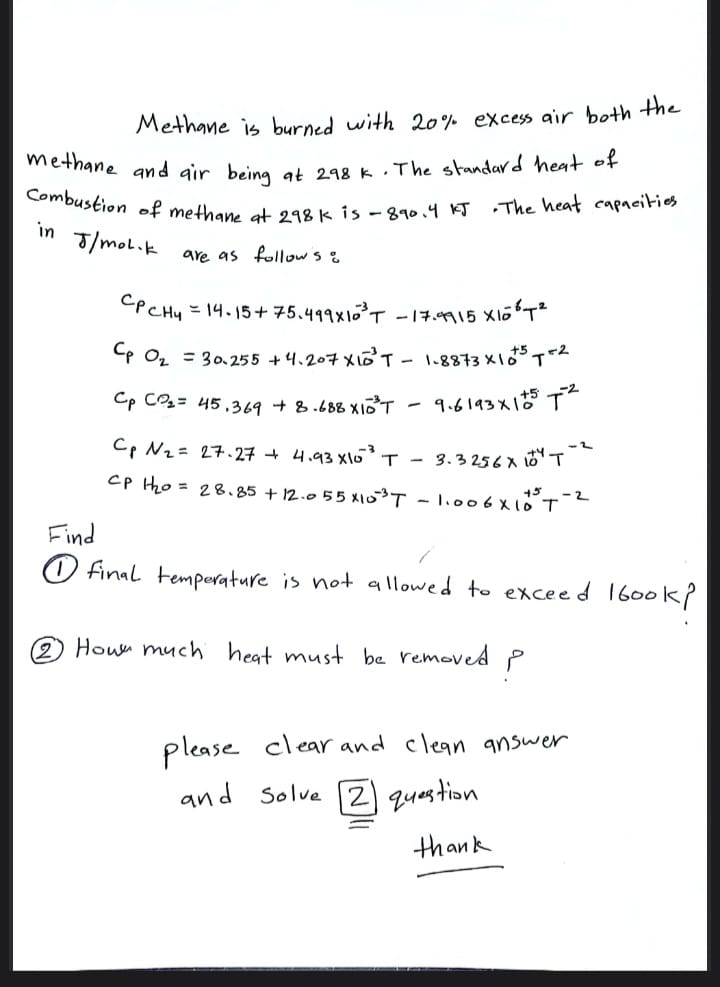 Methane is burned with 20% excess air both the
methane and air being at 298 K . The standard heat of
Combustion of methane at 298 K is - 890.4 KJ . The heat capacities
in J/mol.k are as follows :
CpCH4 = 14.15 + 75.499x10⁻³T - 17.9915 x10⁻⁶T²
Cp O2 = 30.255 + 4.207 x10⁻³T - 1.8873 x10⁺⁵ T⁻²
Cp CO2 = 45.369 + 8.688 x10⁻³T - 9.6193x10⁺⁵ T⁻²
Cp N2 = 27.27 + 4.93 x10⁻³ T - 3.3256 x 10⁺⁴ T⁻²
CP H2O = 28.85 + 12.055 x10⁻³T - 1.006 x10⁺⁵ T⁻²
Find
① final temperature is not allowed to exceed 1600 k?
② How much heat must be removed ?
please clear and clean answer
and solve 2 question
thank